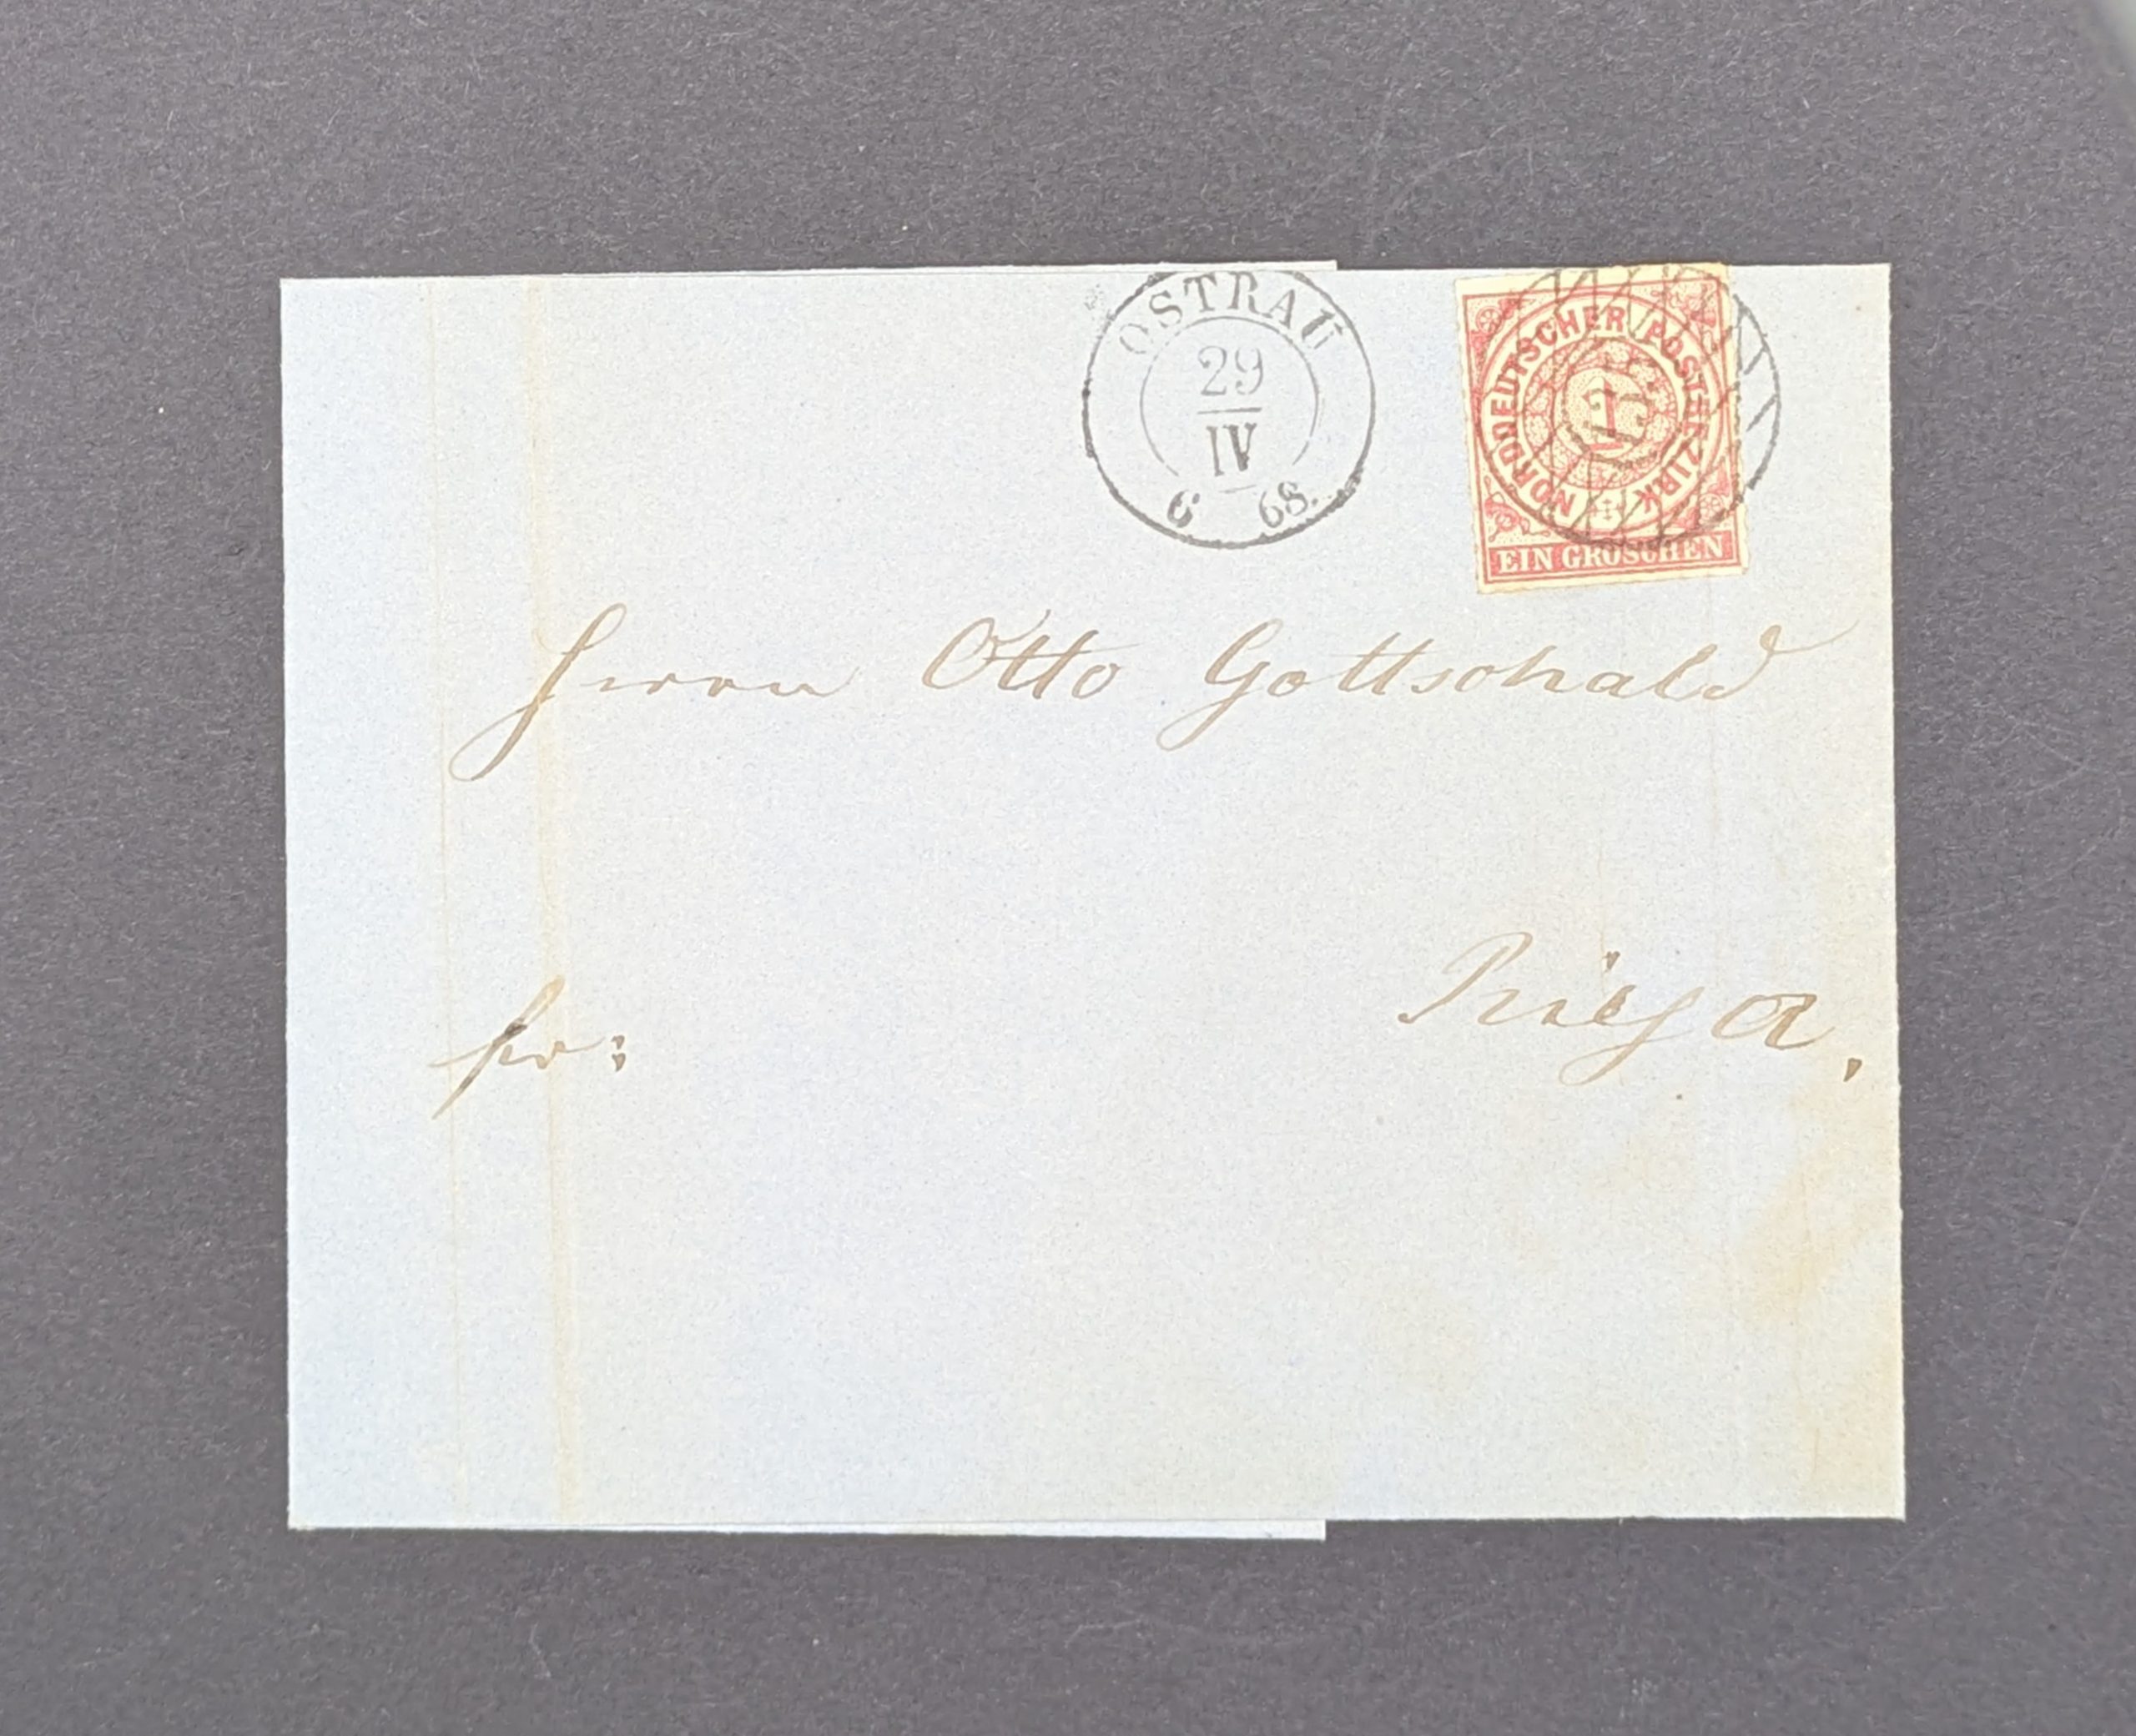 OSTRAU
29
IV
6 68.
NORDDEUTSCHER POSTBEZIRK
1
EIN GROSCHEN
Herrn Otto Gottschald
Riesa.
fr: